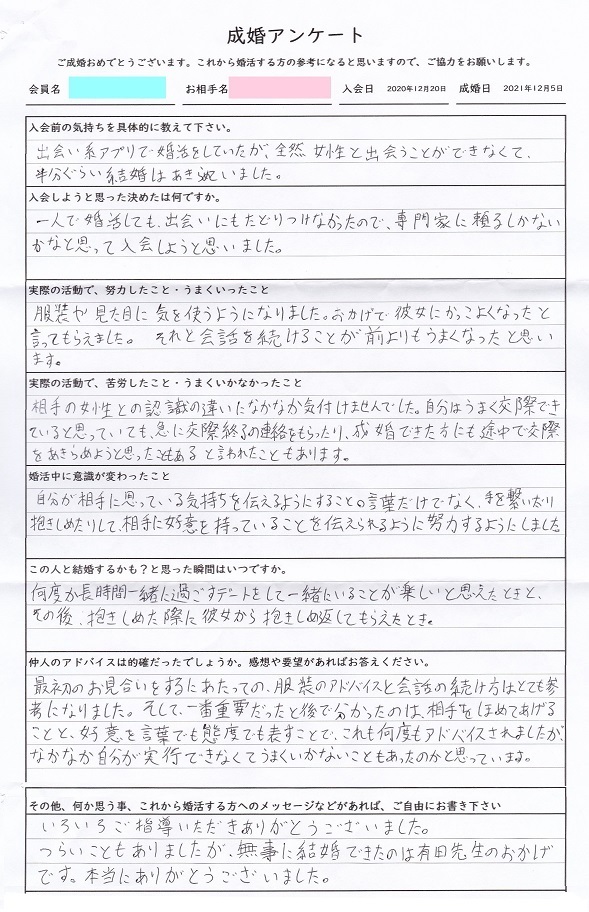 成婚アンケート
ご成婚おめでとうございます。これから婚活する方の参考になると思いますので、ご協力をお願いします。
会員名 お相手名 入会日 2020年12月20日 成婚日 2021年12月5日
入会前の気持ちを具体的に教えて下さい。
出会い系アプリで婚活をしていたが、全然女性と出会うことができなくて、
半分ぐらい結婚はあきらめていました。
入会しようと思った決めたは何ですか。
一人で婚活しても、出会いにもたどりつけなかったので、専門家に頼るしかない
かなと思って入会しようと思いました。
実際の活動で、努力したこと・うまくいったこと
服装や見た目に気を使うようになりました。おかげで彼女にかっこよくなったと
言ってもらえました。 それと会話を続けることが前よりもうまくなったと思い
ます。
実際の活動で、苦労したこと・うまくいかなかったこと
相手の女性との認識の違いになかなか気付けませんでした。自分はうまく交際でき
ていると思っていても、急に交際終了の連絡をもらったり、成婚できた方にも途中で交際
をあきらめようと思ったこともあると言われたこともあります。
婚活中に意識が変わったこと
自分が相手に思っている気持ちを伝えるようにすることの言葉だけでなく、手を繋いだり
抱きしめたりして、相手に好意を持っていることを伝えられるように努力するようにしました
この人と結婚するかも？と思った瞬間はいつですか。
何度か長時間一緒に過ごすデートをして一緒にいることが楽しいと思えたときと、
その後、抱きしめた際に彼女から抱きしめ返してもらえたとき。
仲人のアドバイスは的確だったでしょうか。感想や要望があればお答えください。
最初のお見合いをするにあたっての、服装のアドバイスと会話の続け方はとても参
考になりました。そして、一番重要だったと後で分かったのは、相手をほめてあげる
ことと、好意を言葉でも態度でも表すことで、これも何度もアドバイスされましたが、
なかなか自分が実行できなくてうまくいかないこともあったのかと思っています。
その他、何か思う事、これから婚活する方へのメッセージなどがあれば、ご自由にお書き下さい
いろいろご指導いただきありがとうございました。
つらいこともありましたが、無事に結婚できたのは有田先生のおかげ
です。本当にありがとうございました。